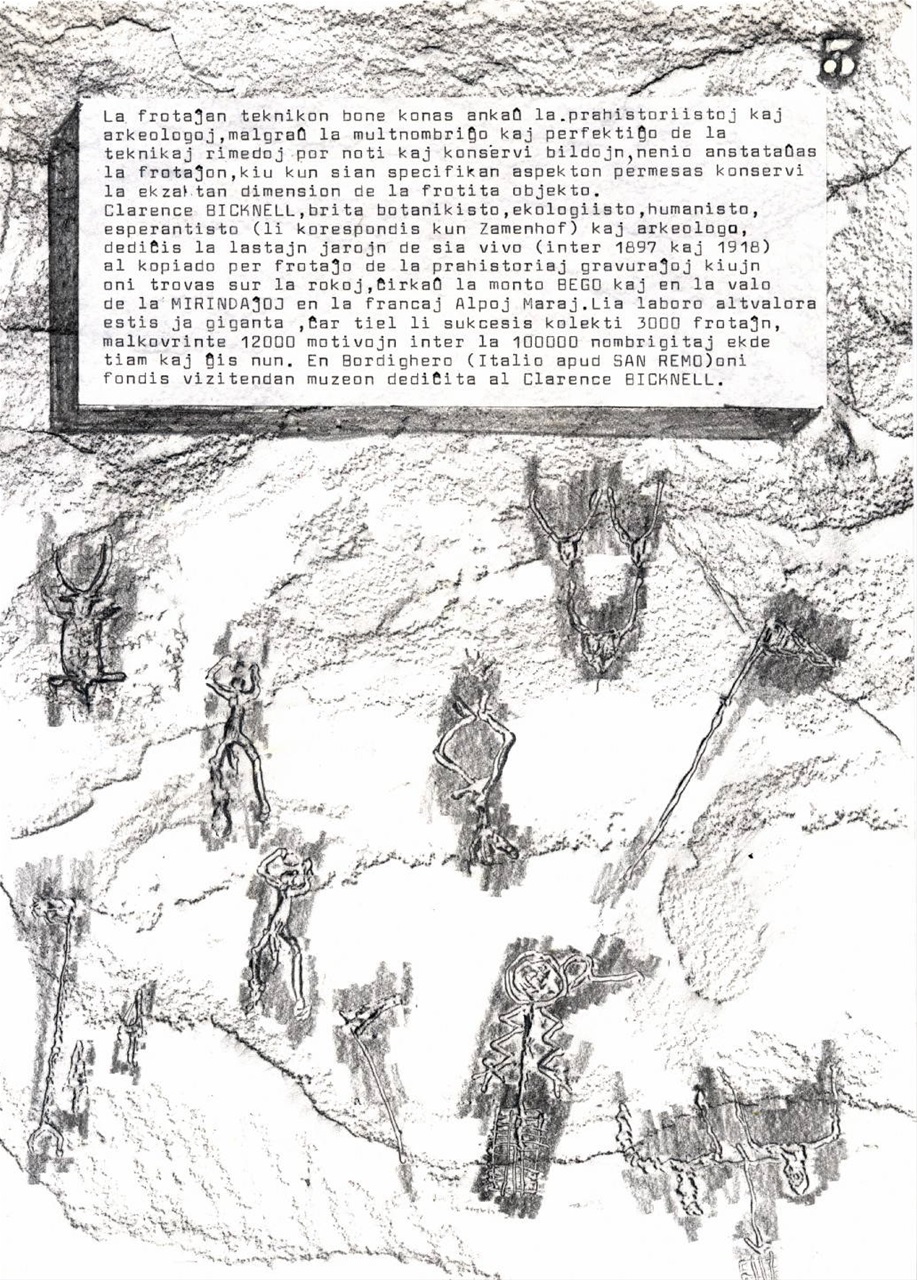 5
La frotaĵan teknikon bone konas ankaŭ la.prahistoriistoj kaj
arkeologoj,malgraŭ la multnombriĝo kaj perfektiĝo de la
teknikaj rimedoj por noti kaj konservi bildojn,nenio anstataŭas
la frotaĵon,kiu kun sian specifikan aspekton permesas konservi
la ekzaktan dimension de la frotita objekto.
Clarence BICKNELL,brita botanikisto,ekologiisto,humanisto,
esperantisto (li korespondis kun Zamenhof) kaj arkeologo,
dediĉis la lastajn jarojn de sia vivo (inter 1897 kaj 1918)
al kopiado per frotaĵo de la prahistoriaj gravuraĵoj kiujn
oni trovas sur la rokoj,ĉirkaŭ la monto BEGO kaj en la valo
de la MIRINDAĴOJ en la francaj Alpoj Maraj.Lia laboro altvalora
estis ja giganta ,ĉar tiel li sukcesis kolekti 3000 frotaĵn,
malkovrinte 12000 motivojn inter la 100000 nombrigitaj ekde
tiam kaj ĝis nun. En Bordighero (Italio apud SAN REMO)oni
fondis vizitendan muzeon dediĉita al Clarence BICKNELL.